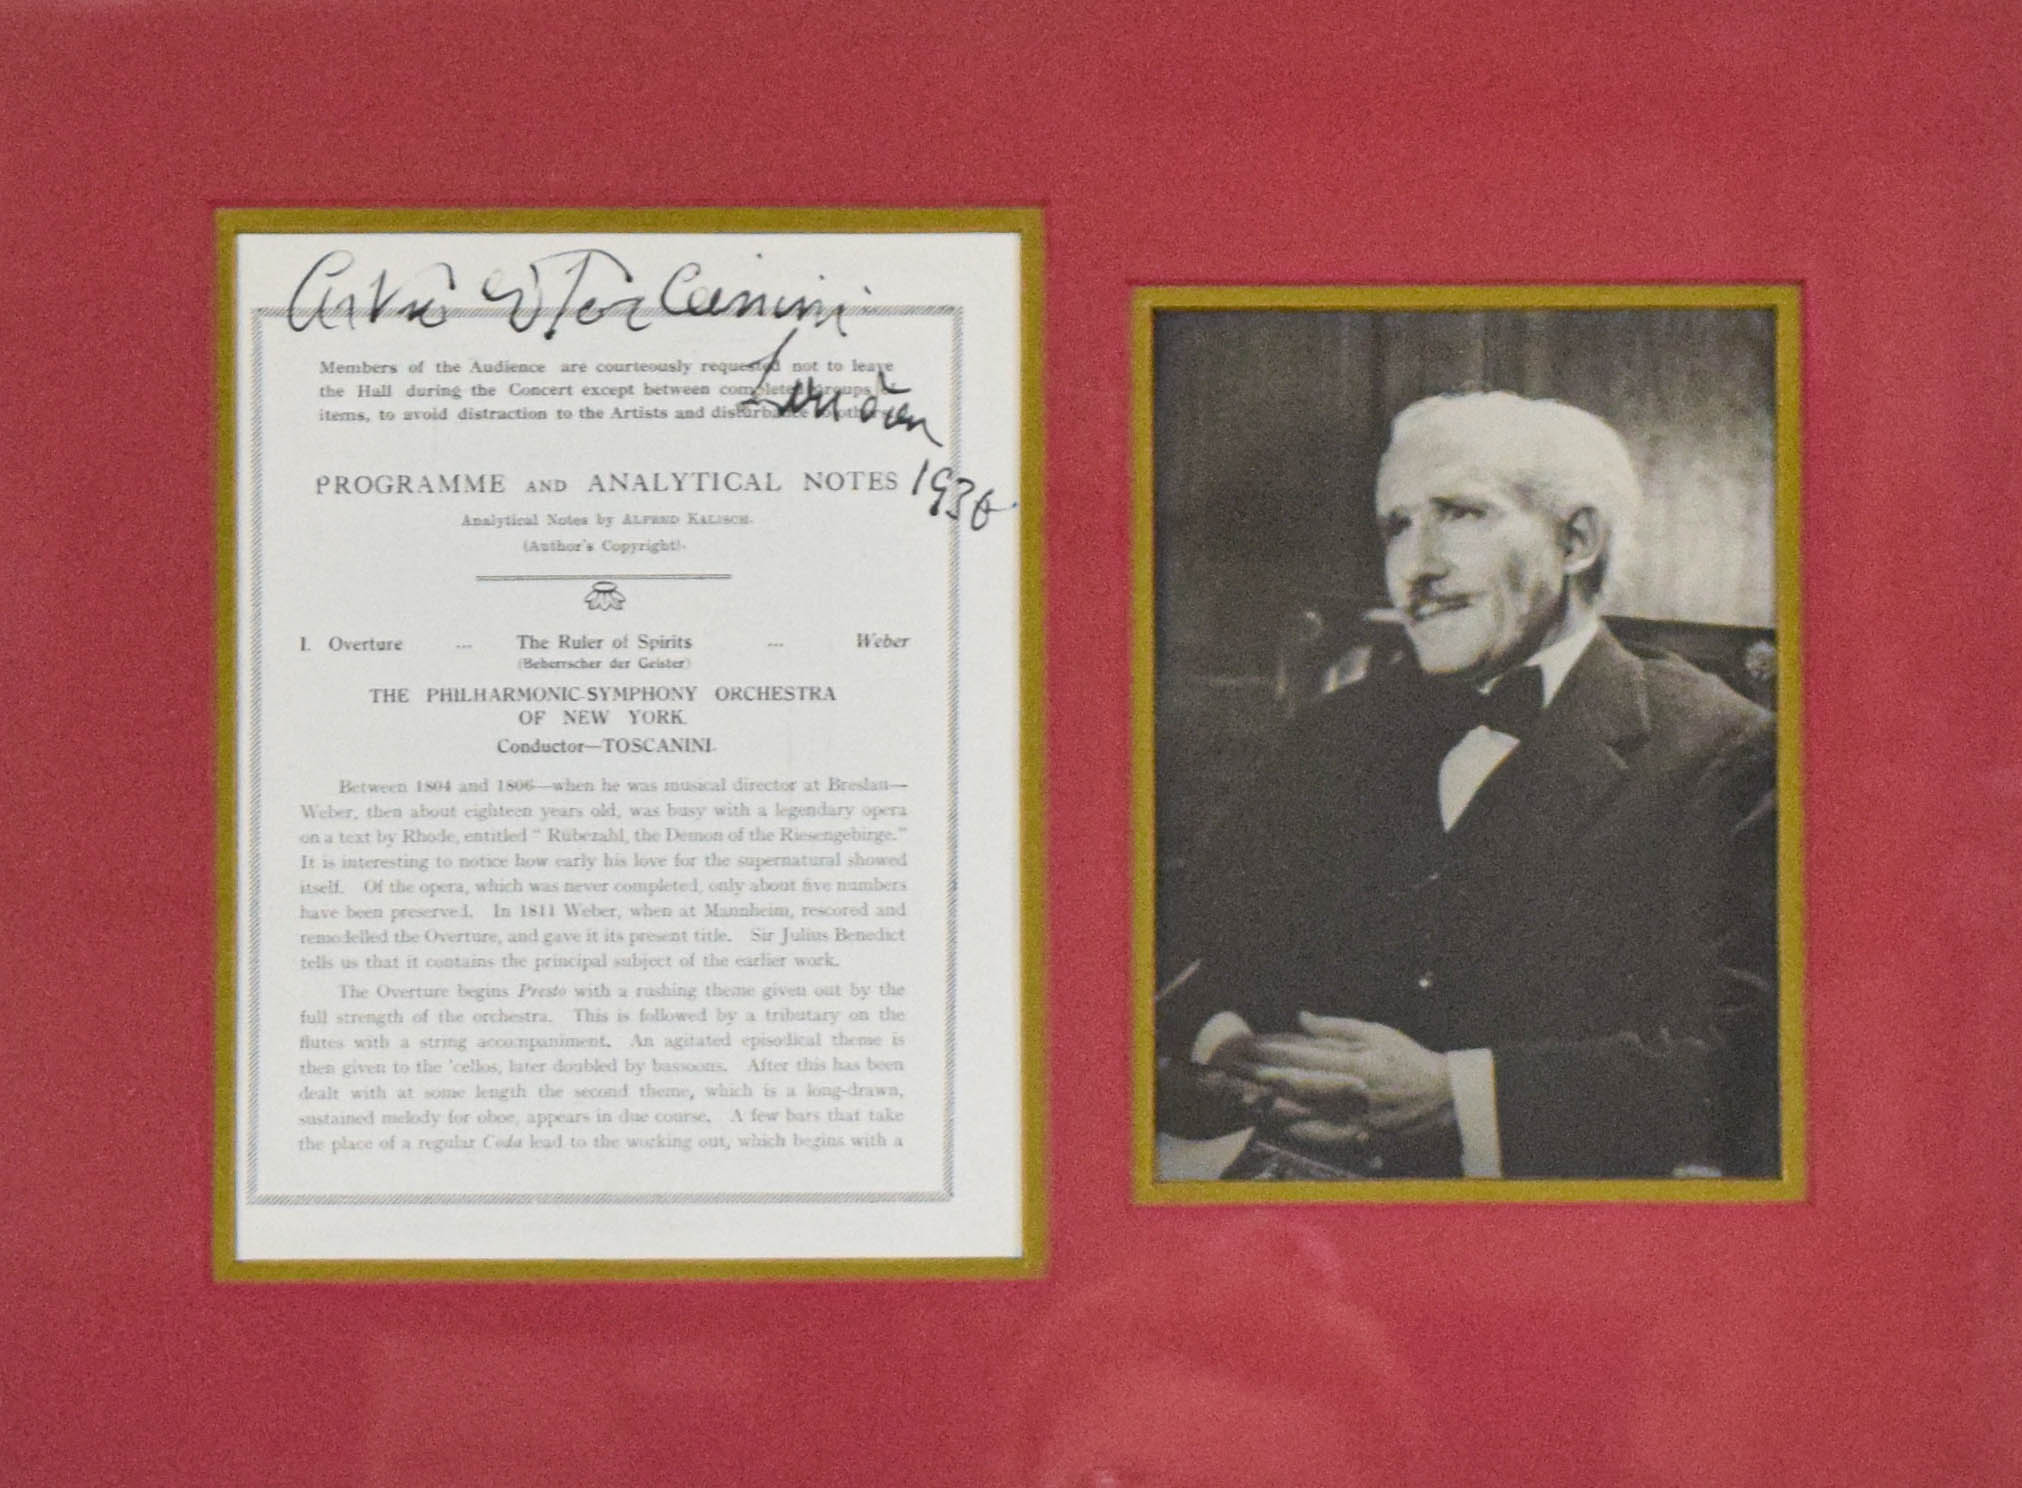 Arturo Toscanini
London
1936
Members of the Audience are courteously requested not to leave
the Hall during the Concert except between completed Groups
items, to avoid distraction to the Artists and disturbance to others
PROGRAMME AND ANALYTICAL NOTES
Analytical Notes by ALFRED KALISCH.
(Author's Copyright).
I. Overture ... The Ruler of Spirits ... Weber
(Beherrscher der Geister)
THE PHILHARMONIC-SYMPHONY ORCHESTRA
OF NEW YORK.
Conductor—TOSCANINI.
Between 1804 and 1806—when he was musical director at Breslau—
Weber, then about eighteen years old, was busy with a legendary opera
on a text by Rhode, entitled “ Rübezahl, the Demon of the Riesengebirge.”
It is interesting to notice how early his love for the supernatural showed
itself. Of the opera, which was never completed, only about five numbers
have been preserved. In 1811 Weber, when at Mannheim, rescored and
remodelled the Overture, and gave it its present title. Sir Julius Benedict
tells us that it contains the principal subject of the earlier work.
The Overture begins Presto with a rushing theme given out by the
full strength of the orchestra. This is followed by a tributary on the
flutes with a string accompaniment. An agitated episodical theme is
then given to the 'cellos, later doubled by bassoons. After this has been
dealt with at some length the second theme, which is a long-drawn,
sustained melody for oboe, appears in due course. A few bars that take
the place of a regular Coda lead to the working out, which begins with a